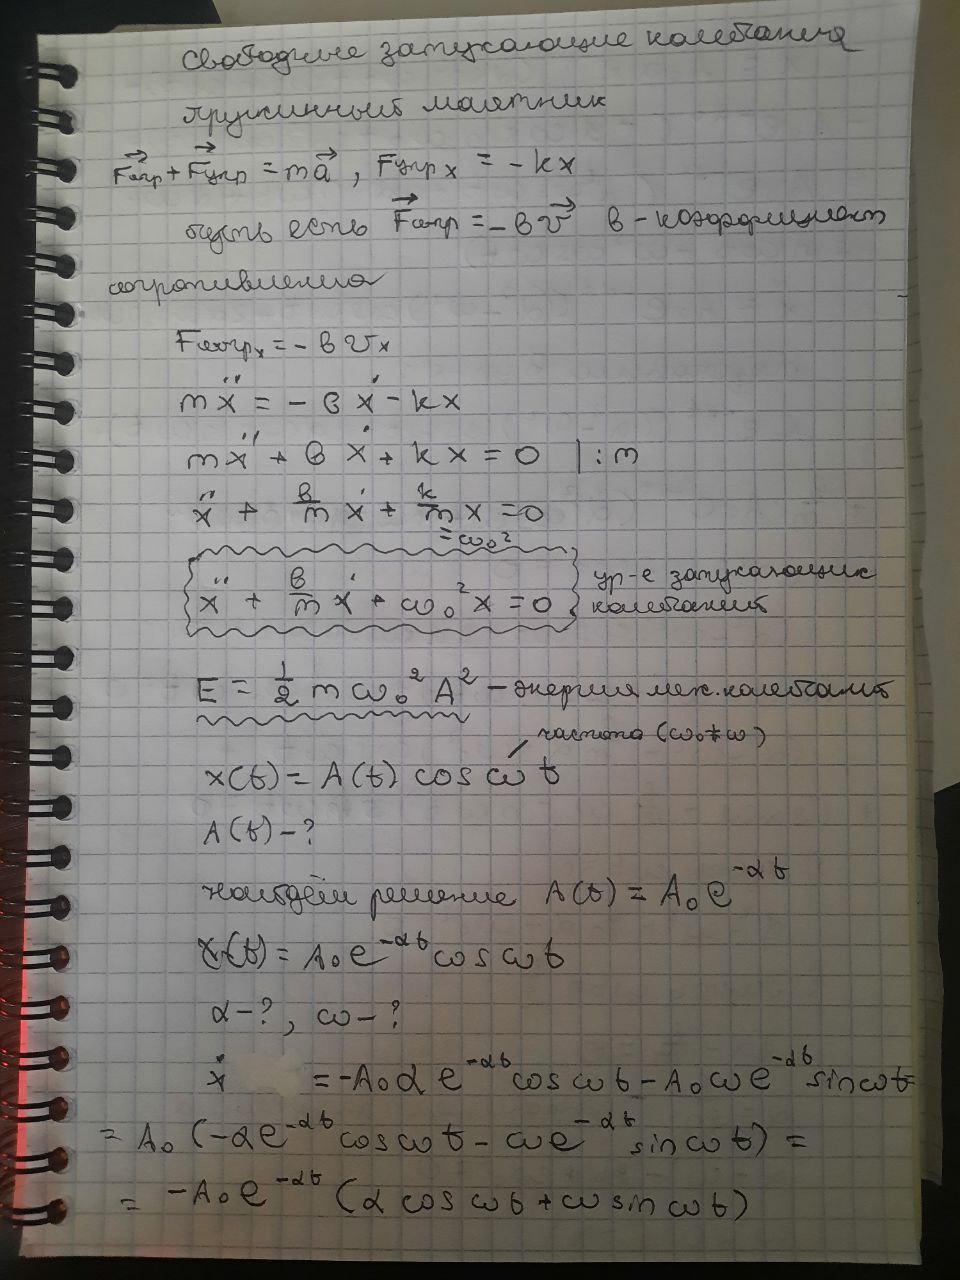 Свободные затухающие колебания
пружинный маятник
F⃗сопр + F⃗упр = ma⃗, Fупр x = - kx
пусть есть F⃗сопр = - в v⃗ в - коэффициент
сопротивления
Fсопр x = - в v x
mẍ = - в ẋ - kx
mẍ + в ẋ + kx = 0 | : m
ẍ + в/m ẋ + k/m x = 0
= ω₀²
ẍ + в/m ẋ + ω₀² x = 0 } ур-е затухающих
колебаний
E = 1/2 m ω₀² A² - энергия мех. колебаний
частота (ω₀ ≠ ω)
x(t) = A(t) cos ω t
A(t) - ?
найдём решение A(t) = A₀ e^(-αt)
x(t) = A₀ e^(-αt) cos ω t
α - ?, ω - ?
ẋ = -A₀ α e^(-αt) cos ω t - A₀ ω e^(-αt) sin ω t =
= A₀ (-α e^(-αt) cos ω t - ω e^(-αt) sin ω t) =
= -A₀ e^(-αt) (α cos ω t + ω sin ω t)